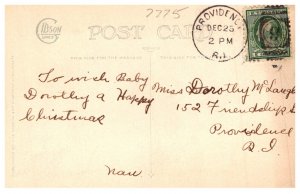 7775
GIBSON
POST CARD
PROVIDENCE
DEC 25
2 PM
R.I.
To wich Baby
Dorothy a Happy
Christmas
Nan
Miss Dorothy McLaugh
152 Friendship S
Providence
R. I.